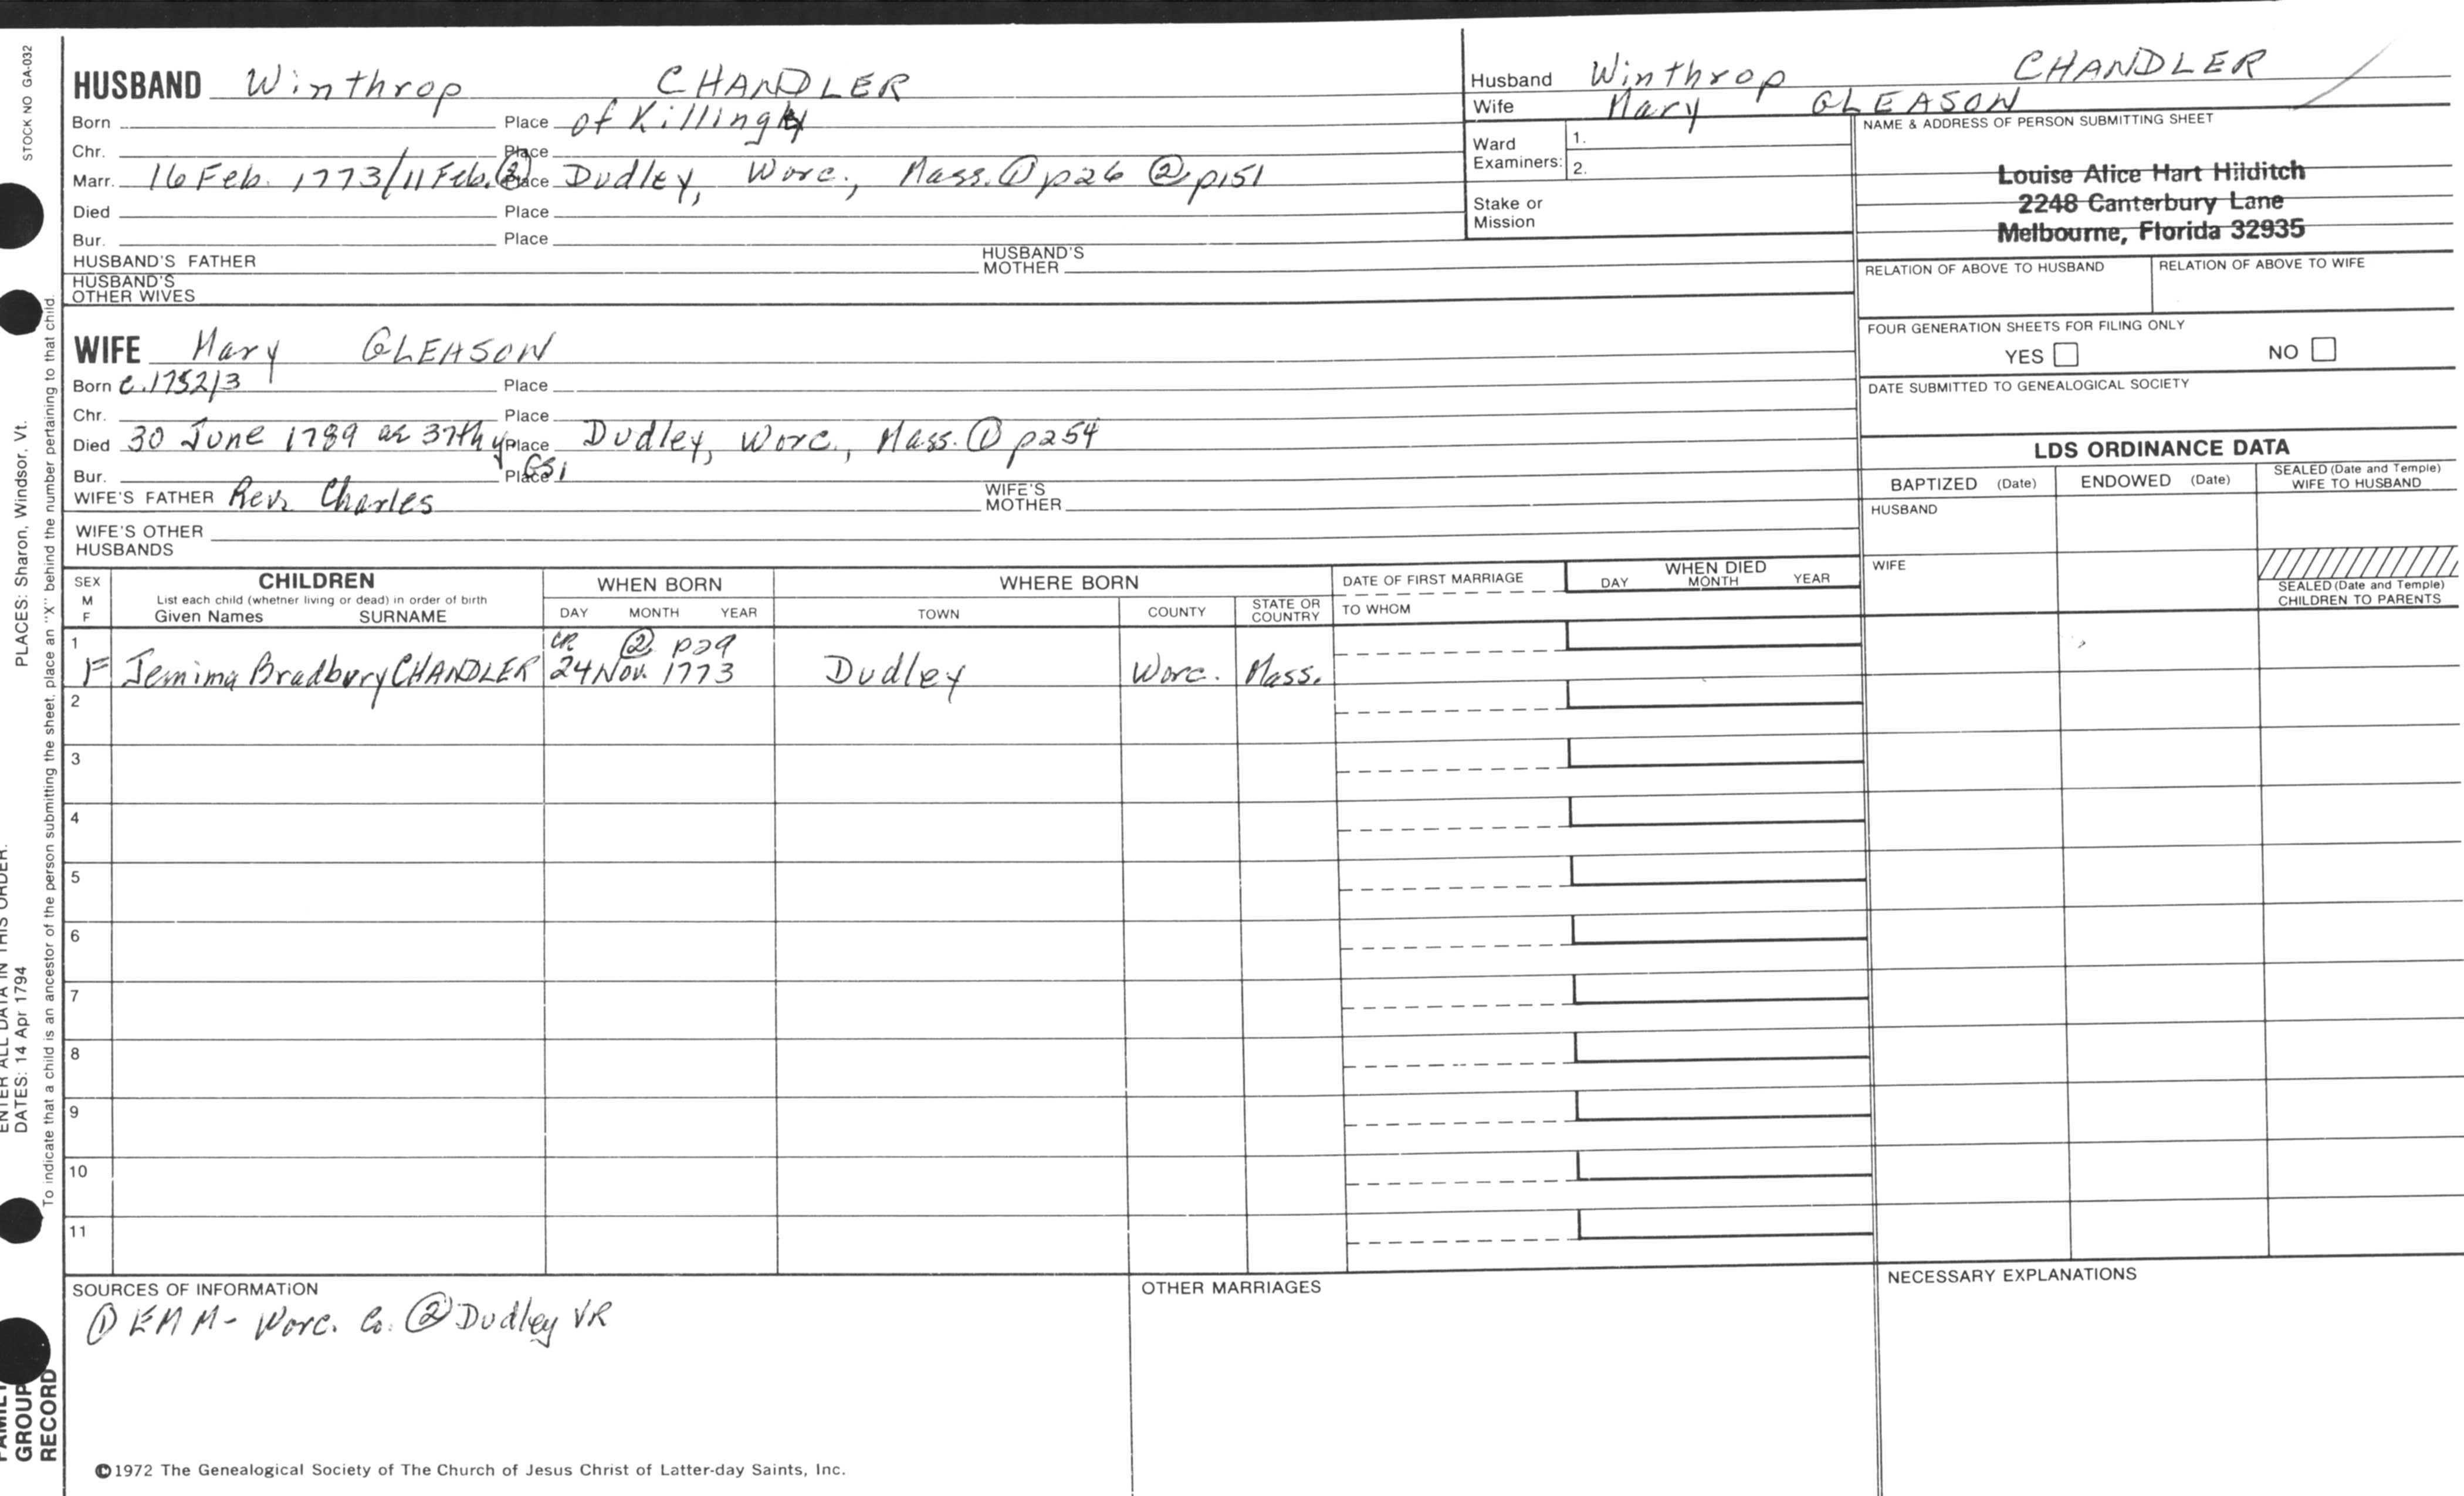 STOCK NO GA-032
PLACES: Sharon, Windsor, Vt.
ENTER ALL DATA IN THIS ORDER:
DATES: 14 Apr 1794
To indicate that a child is an ancestor of the person submitting the sheet, place an "X" behind the number pertaining to that child.
FAMILY GROUP RECORD
HUSBAND Winthrop CHANDLER
Born Place of Killingly
Chr. Place
Marr. 16 Feb. 1773/11 Feb. ② Place Dudley, Worc., Mass. ① p26 ② p151
Died Place
Bur. Place
HUSBAND'S FATHER HUSBAND'S MOTHER
HUSBAND'S OTHER WIVES
WIFE Mary GLEASON
Born c.1752/3 Place
Chr. Place
Died 30 June 1789 ae 37th y Place Dudley, Worc., Mass. ① p254
Bur. Place GS1
WIFE'S FATHER Rev. Charles WIFE'S MOTHER
WIFE'S OTHER HUSBANDS
Husband Winthrop CHANDLER
Wife Mary GLEASON
Ward Examiners: 1.
2.
Stake or Mission
NAME & ADDRESS OF PERSON SUBMITTING SHEET
Louise Alice Hart Hilditch
2248 Canterbury Lane
Melbourne, Florida 32935
RELATION OF ABOVE TO HUSBAND RELATION OF ABOVE TO WIFE
FOUR GENERATION SHEETS FOR FILING ONLY
YES NO
DATE SUBMITTED TO GENEALOGICAL SOCIETY
LDS ORDINANCE DATA
BAPTIZED (Date) ENDOWED (Date) SEALED (Date and Temple) WIFE TO HUSBAND
HUSBAND
WIFE
SEALED (Date and Temple) CHILDREN TO PARENTS
SEX M F
CHILDREN
List each child (whether living or dead) in order of birth
Given Names SURNAME
WHEN BORN
DAY MONTH YEAR
WHERE BORN
TOWN COUNTY STATE OR COUNTRY
DATE OF FIRST MARRIAGE
TO WHOM
WHEN DIED
DAY MONTH YEAR
CR ② p29
1 F Jemima Bradbury CHANDLER 24 Nov. 1773 Dudley Worc. Mass.
2
3
4
5
6
7
8
9
10
11
SOURCES OF INFORMATION
① EMM - Worc. Co. ② Dudley VR
OTHER MARRIAGES
NECESSARY EXPLANATIONS
©1972 The Genealogical Society of The Church of Jesus Christ of Latter-day Saints, Inc.